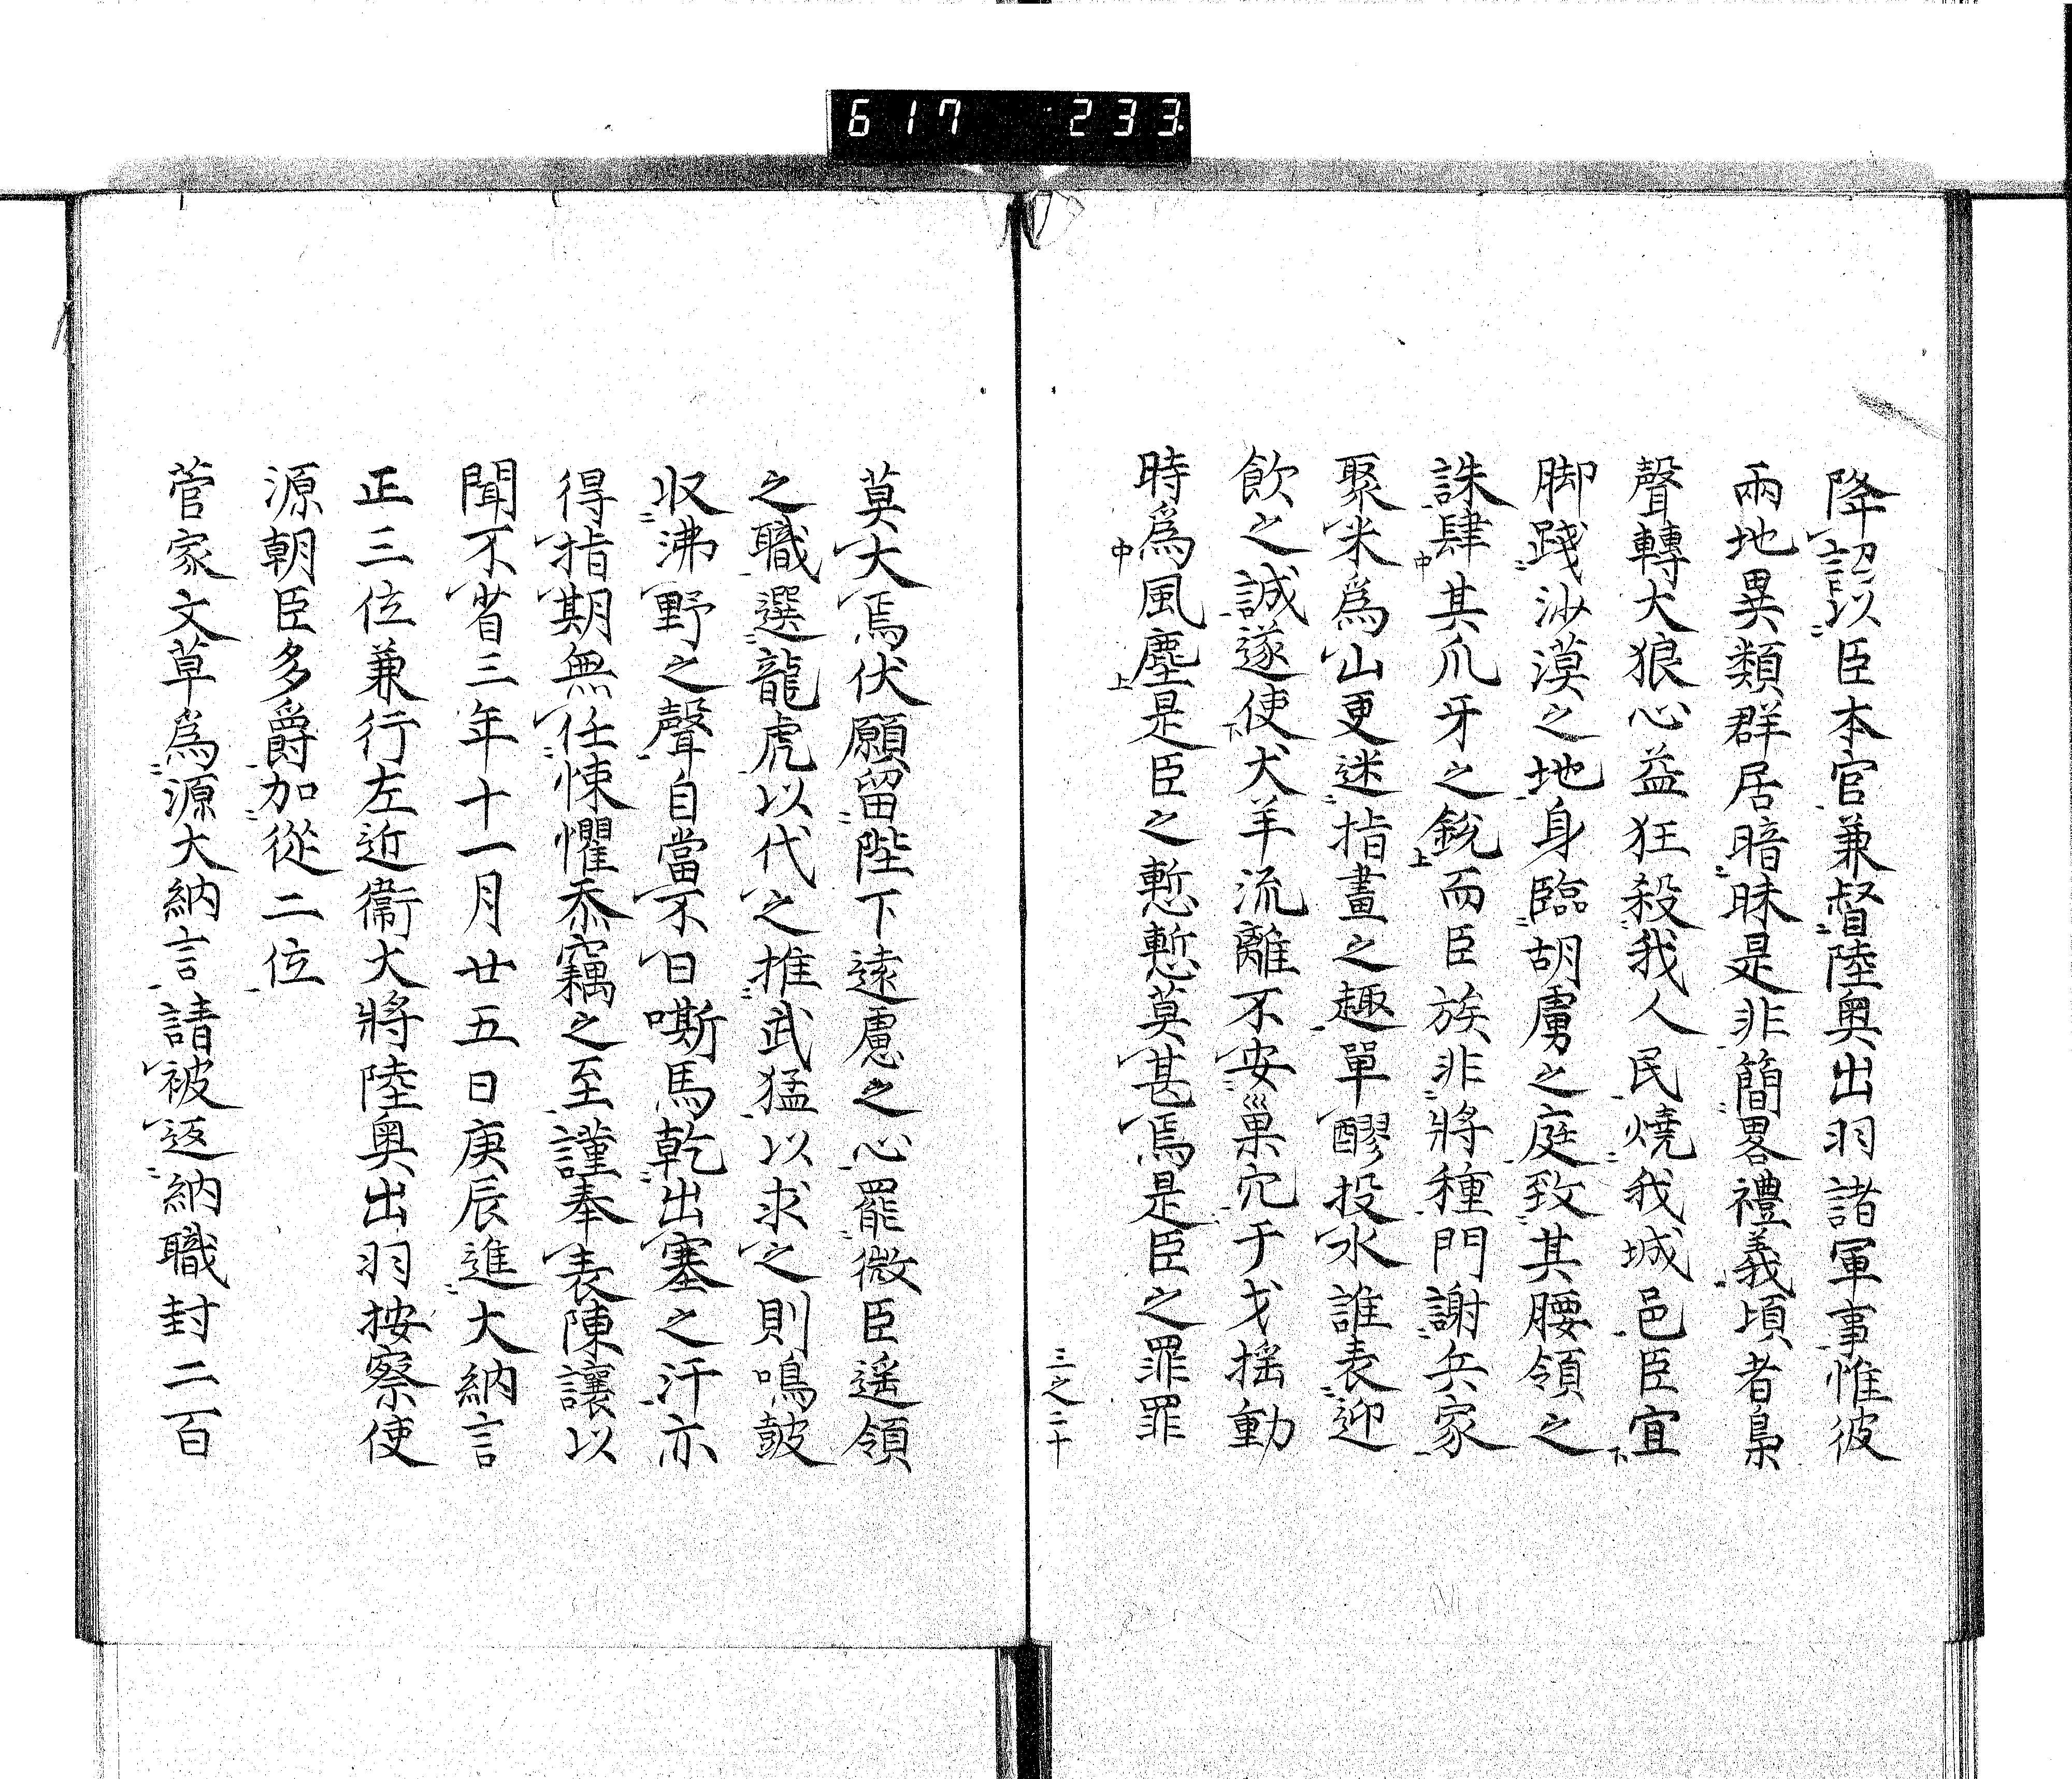 617 233
降詔以臣本官兼督陸奥出羽諸軍事惟彼
兩地異類群居暗昧是非簡畧禮義頃者梟
聲轉大狼心益狂殺我人民燒我城邑臣宜
脚踐沙漠之地身臨胡虜之庭致其腰領之
誅肆其爪牙之鋭而臣族非將種門謝兵家
聚米爲山更迷指畫之趣單醪投水誰表迎
飲之誠遂使犬羊流離不安巢穴于戈揺動
時爲風塵是臣之慙慙莫甚焉是臣之罪罪
三之二十
莫大焉伏願留陛下遠慮之心罷微臣遥領
之職選龍虎以代之推武猛以求之則鳴皷
収沸野之聲自當不日嘶馬乾出塞之汗亦
得指期無任悚懼忝竊之至謹奉表陳讓以
聞不省三年十一月廿五日庚辰進大納言
正三位兼行左近衞大將陸奥出羽按察使
源朝臣多爵加從二位
菅家文草爲源大納言請被返納職封二百